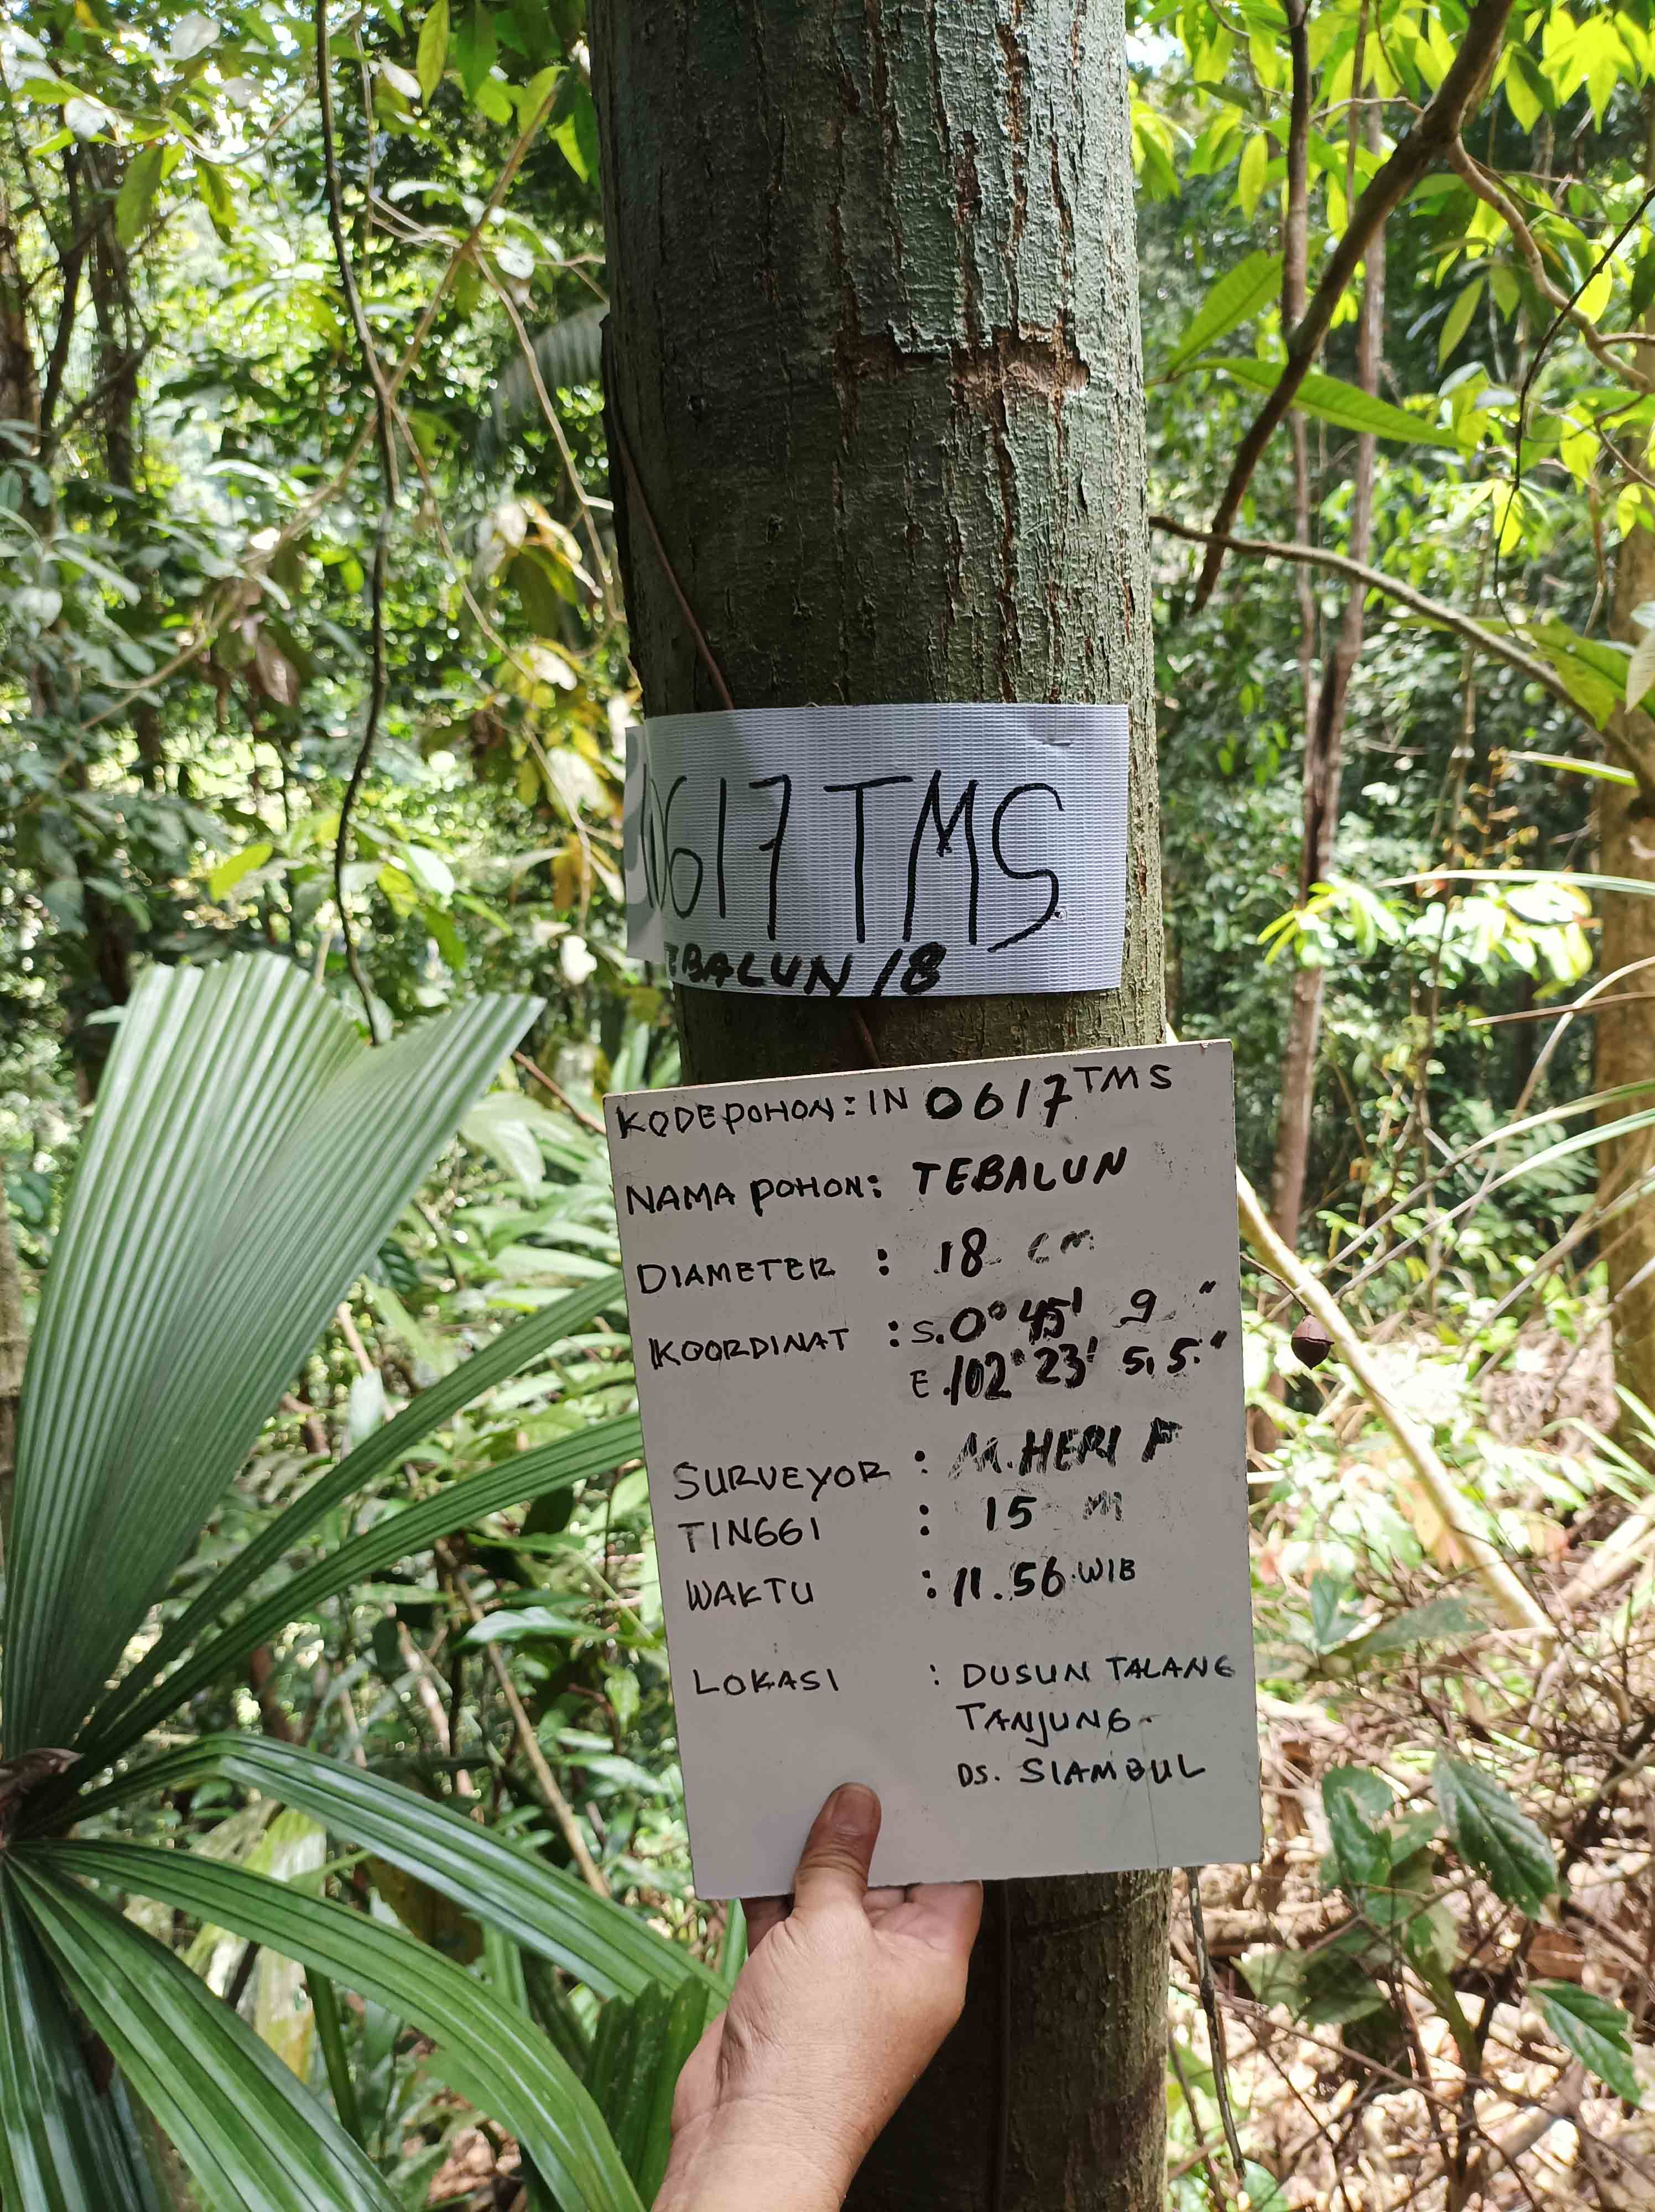 0617 TMS
TEBALUN /18
KODE POHON : IN 0617 TMS
NAMA POHON : TEBALUN
DIAMETER : 18 cm
KOORDINAT : S. 0° 45' 9 "
E. 102° 23' 5,5."
SURVEYOR : M.HERI F
TINGGI : 15 m
WAKTU : 11.56 WIB
LOKASI : DUSUN TALANG
TANJUNG
DS. SIAMBUL